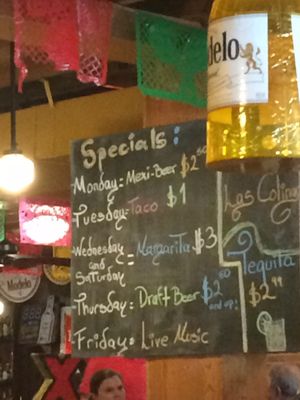 Modelo
Specials:
Monday = Mexi-Beer $2.50
Tuesday-Taco $1
Wednesday and Saturday = Margarita $3
Thursday: Draft Beer $2.50 and up!
Friday: Live Music
Las Colin
Tequila
$2.99
Modelo